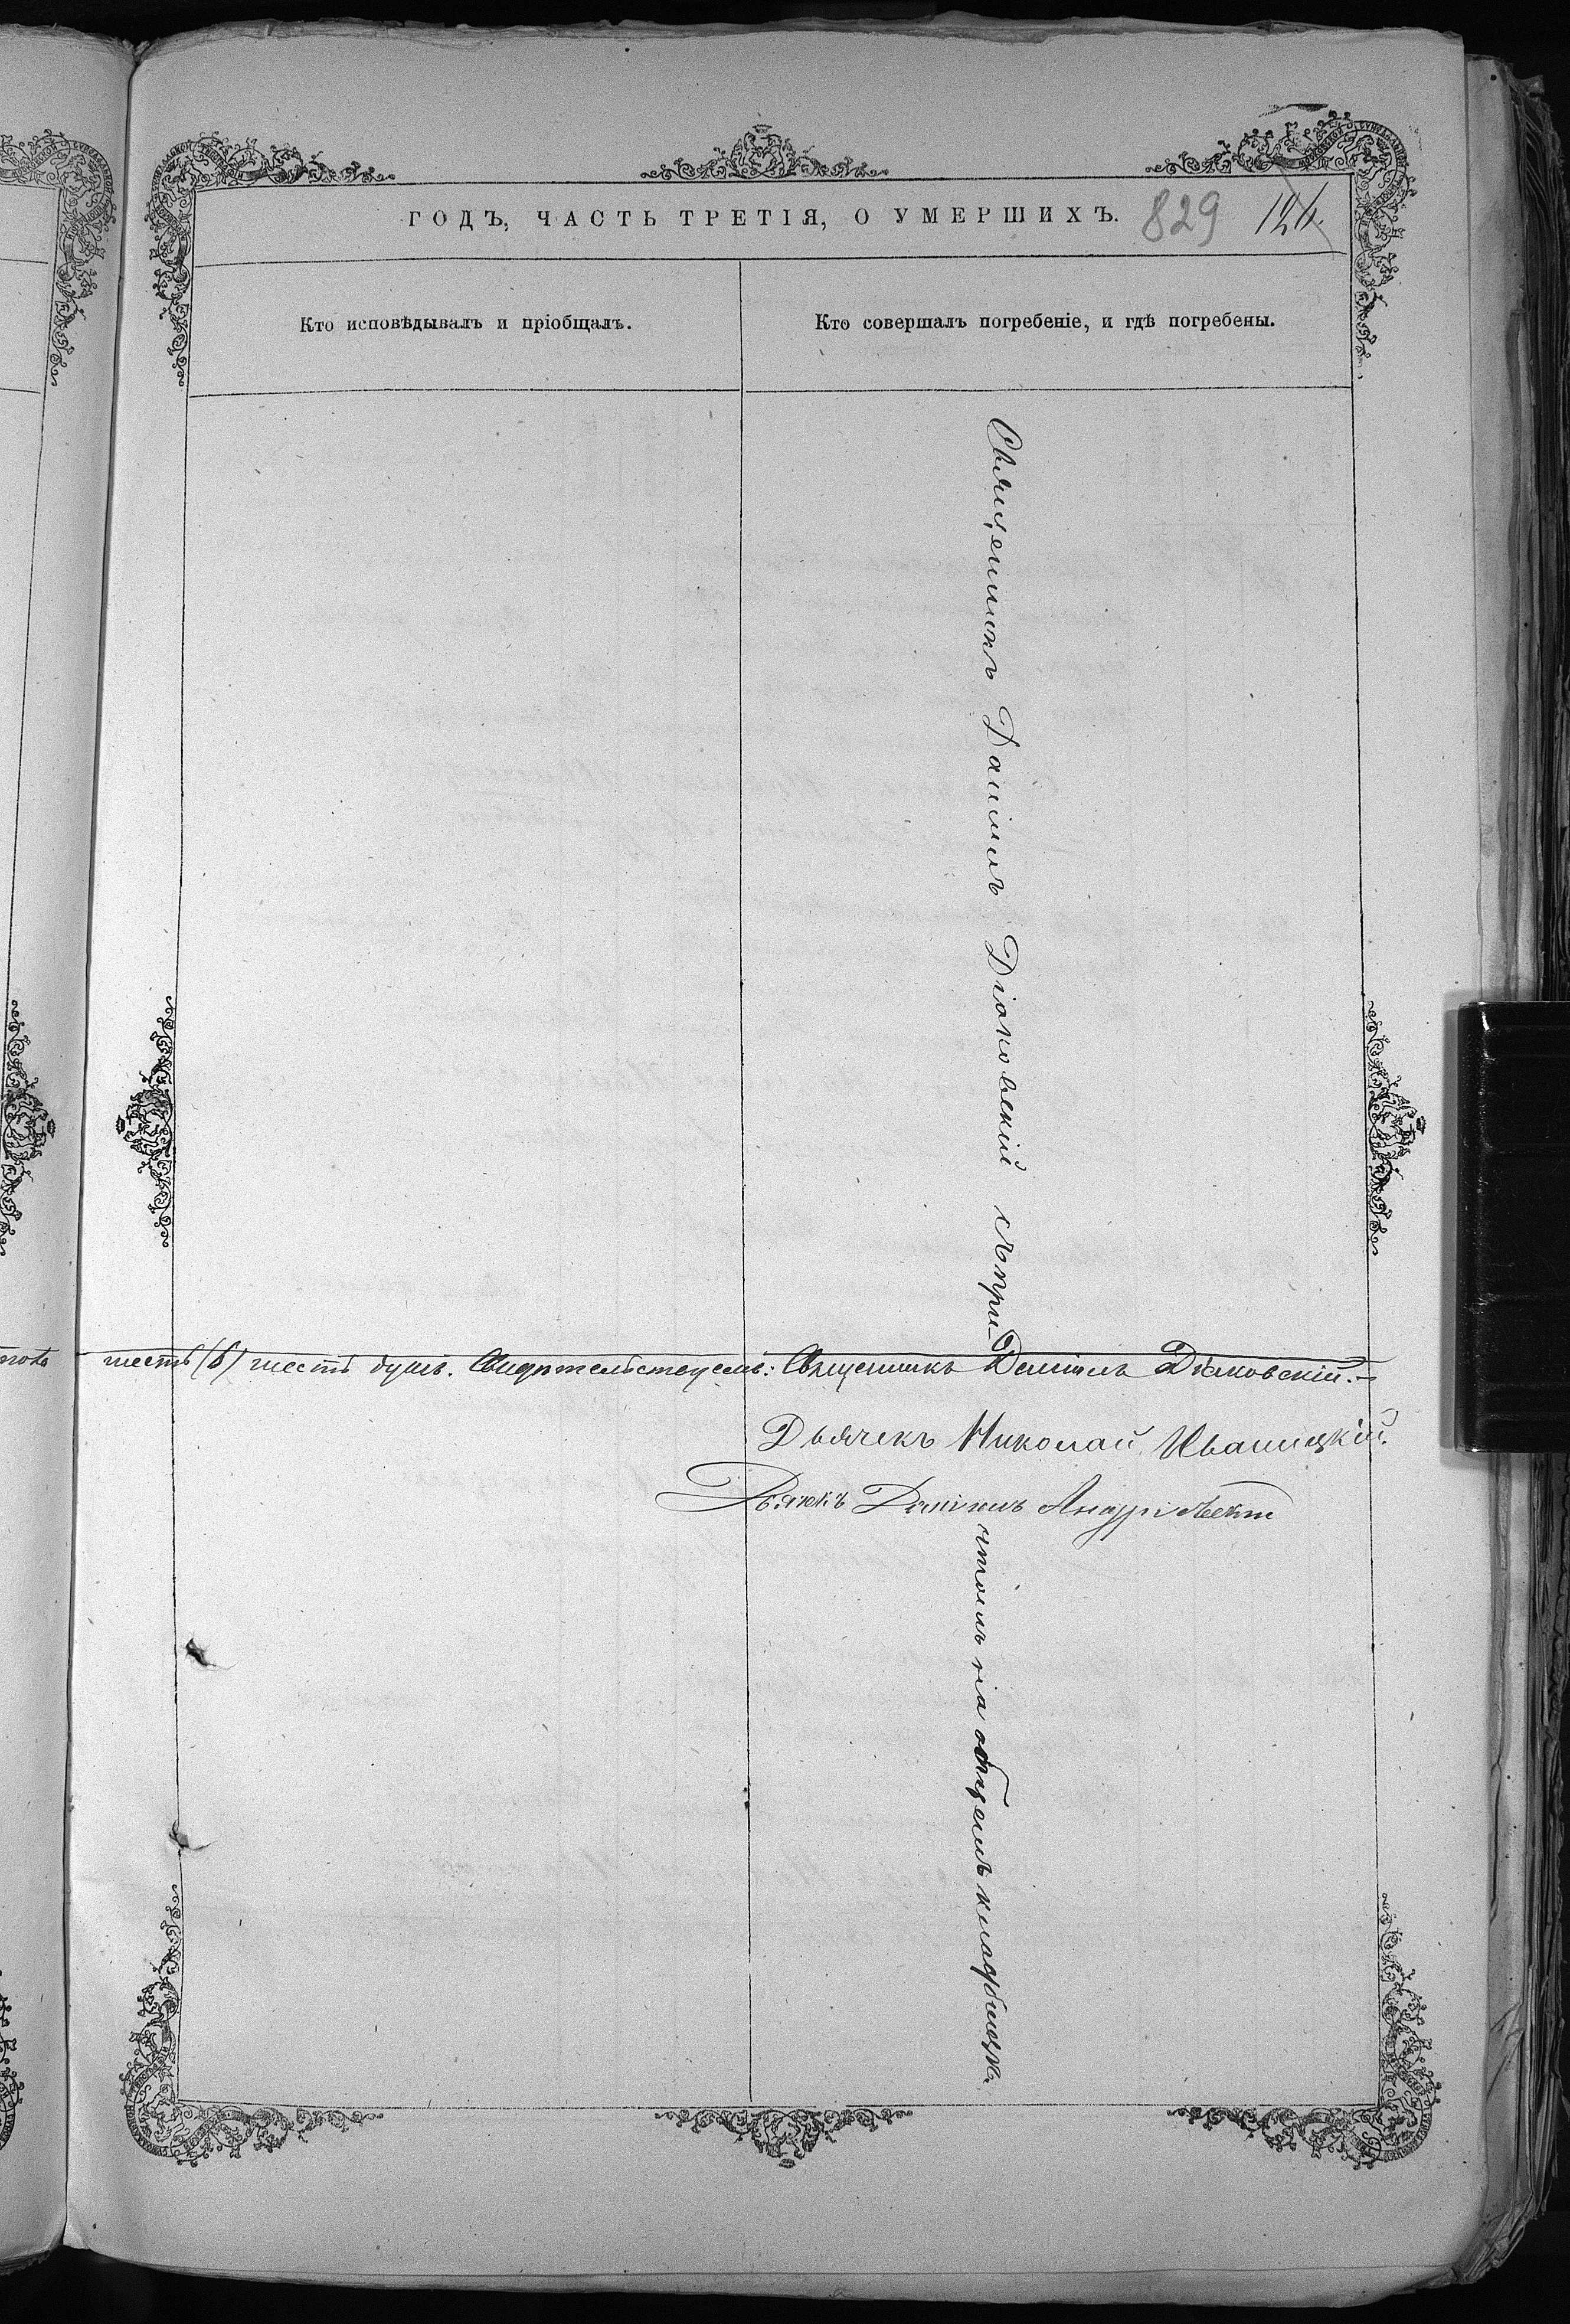 ГОДЪ, ЧАСТЬ ТРЕТІЯ, О УМЕРШИХЪ. 829 126
Кто исповѣдывалъ и пріобщалъ.
Кто совершалъ погребеніе, и гдѣ погребены.
Священникъ Даніилъ Діаковскій съ при-
шесть (6) шесть душъ. Свидѣтельствуемъ: Священникъ Даніилъ Діаковскій.–
Дьячекъ Николай Иваницкій.
Дьячекъ Даніилъ Андріевскій
чтомъ на общемъ кладбищѣ.